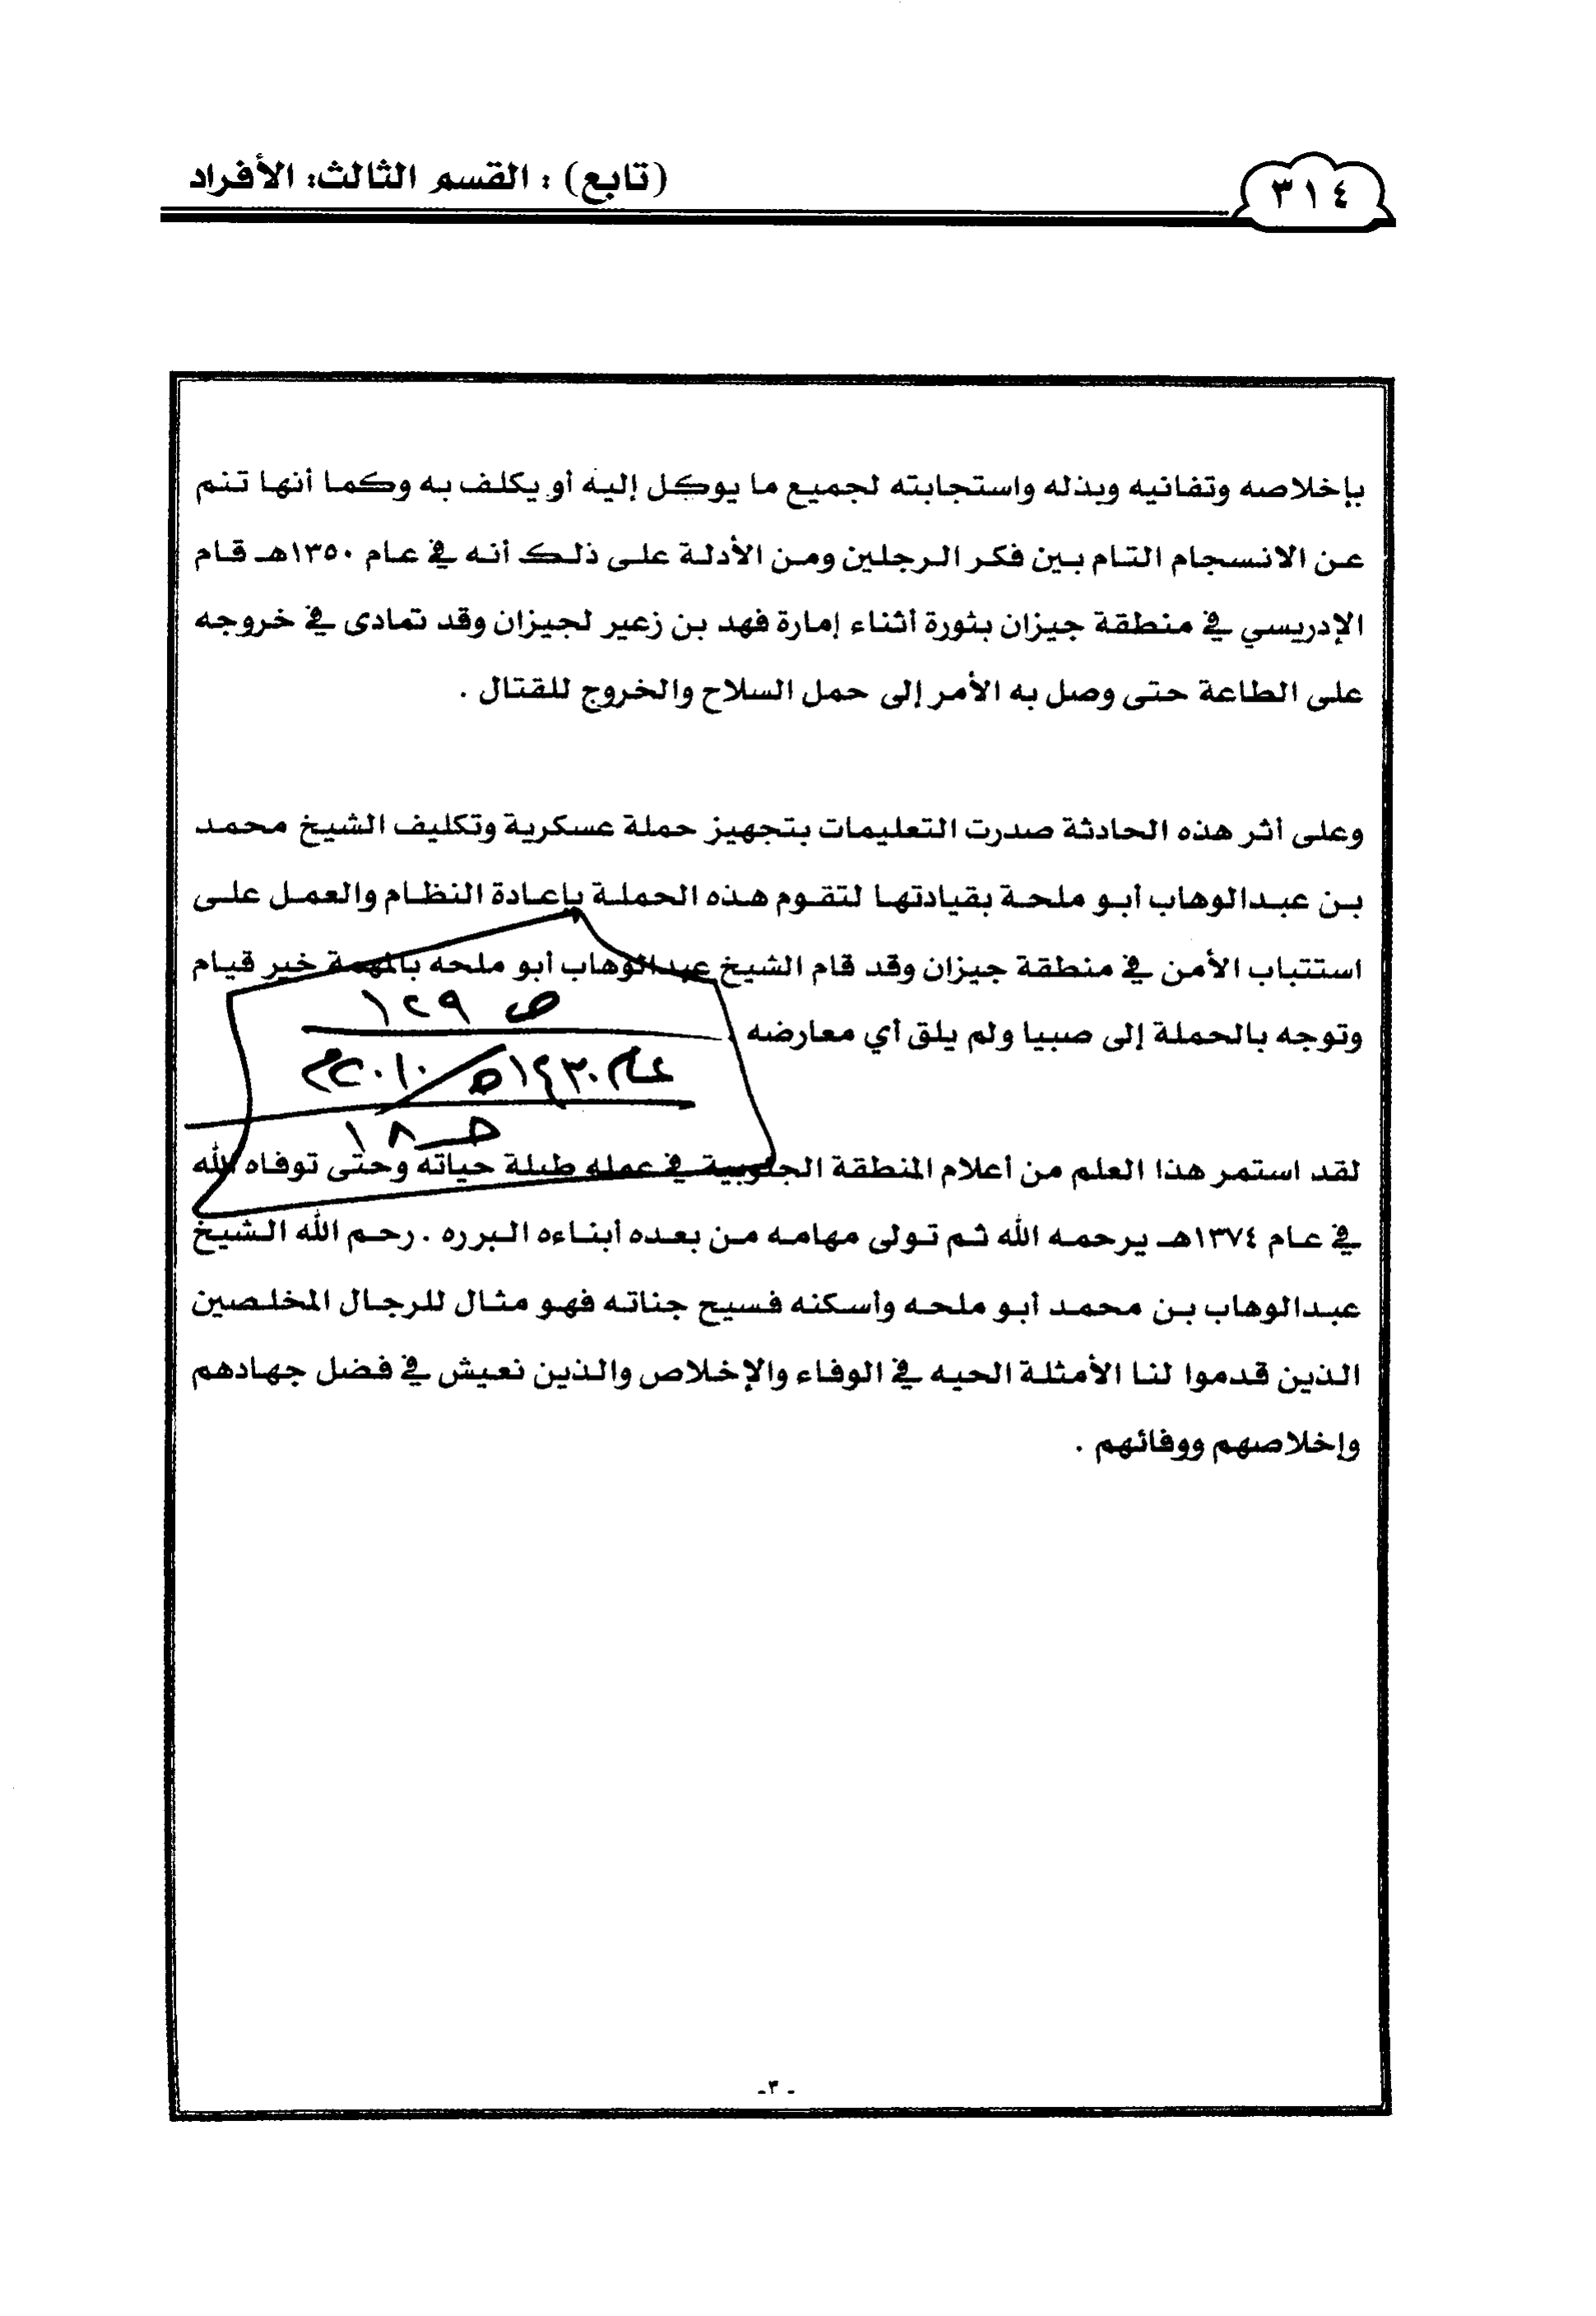 ٣١٤
(تابع) : القسم الثالث: الأفراد
بإخلاصه وتفانيه وبذله واستجابته لجميع ما يوكل إليه أو يكلف به وكما أنها تنم
عن الانسجام التام بين فكر الرجلين ومن الأدلة على ذلك أنه في عام ١٣٥٠هـ قام
الإدريسي في منطقة جيزان بثورة أثناء إمارة فهد بن زعير لجيزان وقد تمادى في خروجه
على الطاعة حتى وصل به الأمر إلى حمل السلاح والخروج للقتال .
وعلى أثر هذه الحادثة صدرت التعليمات بتجهيز حملة عسكرية وتكليف الشيخ محمد
بن عبدالوهاب أبو ملحة بقيادتها لتقوم هذه الحملة بإعادة النظام والعمل على
استتباب الأمن في منطقة جيزان وقد قام الشيخ عبدالوهاب أبو ملحه بالمهمة خير قيام
وتوجه بالحملة إلى صبيا ولم يلق أي معارضه .
ص ١٢٩
عام ١٤٣٠هـ/٢٠١٠م
جـ ١٨
لقد استمر هذا العلم من أعلام المنطقة الجنوبية في عمله طيلة حياته وحتى توفاه الله
في عام ١٣٧٤هـ يرحمه الله ثم تولى مهامه من بعده أبناءه البرره . رحم الله الشيخ
عبدالوهاب بن محمد أبو ملحه وأسكنه فسيح جناته فهو مثال للرجال المخلصين
الذين قدموا لنا الأمثلة الحيه في الوفاء والإخلاص والذين نعيش في فضل جهادهم
وإخلاصهم ووفائهم .
-٣-